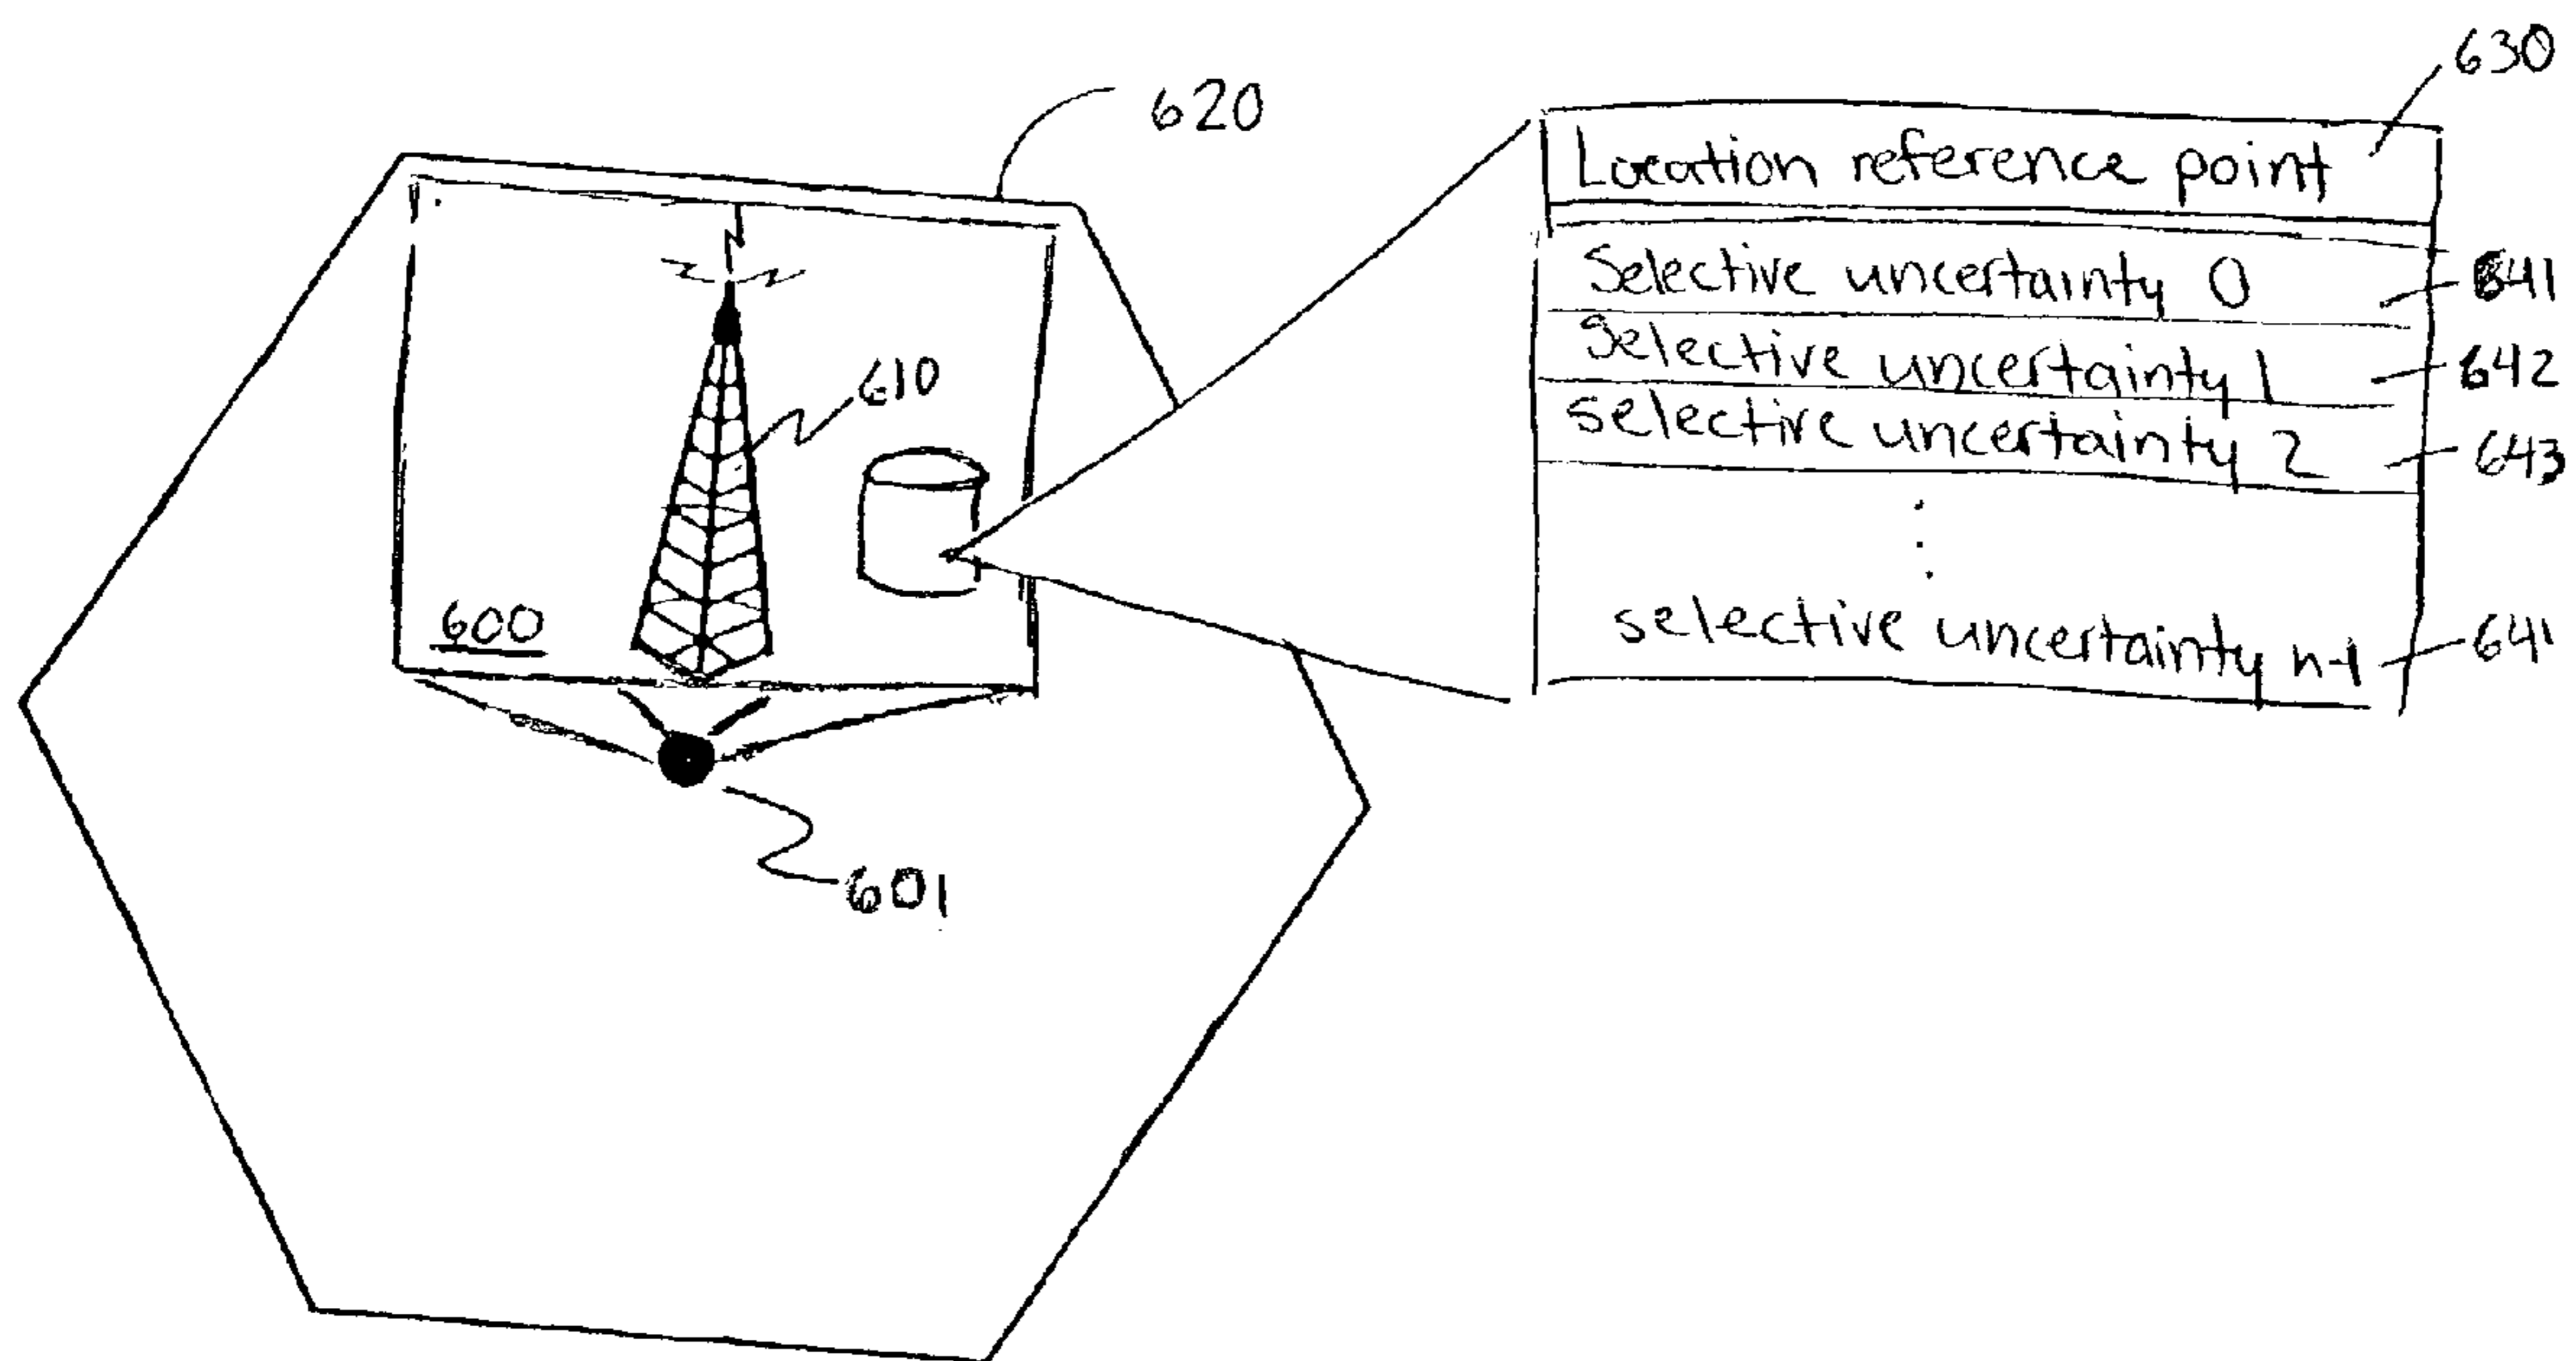 630
620
Location reference point
Selective uncertainty 0
641
Selective uncertainty 1
642
610
selective uncertainty 2
643
600
selective uncertainty n-1
641
601